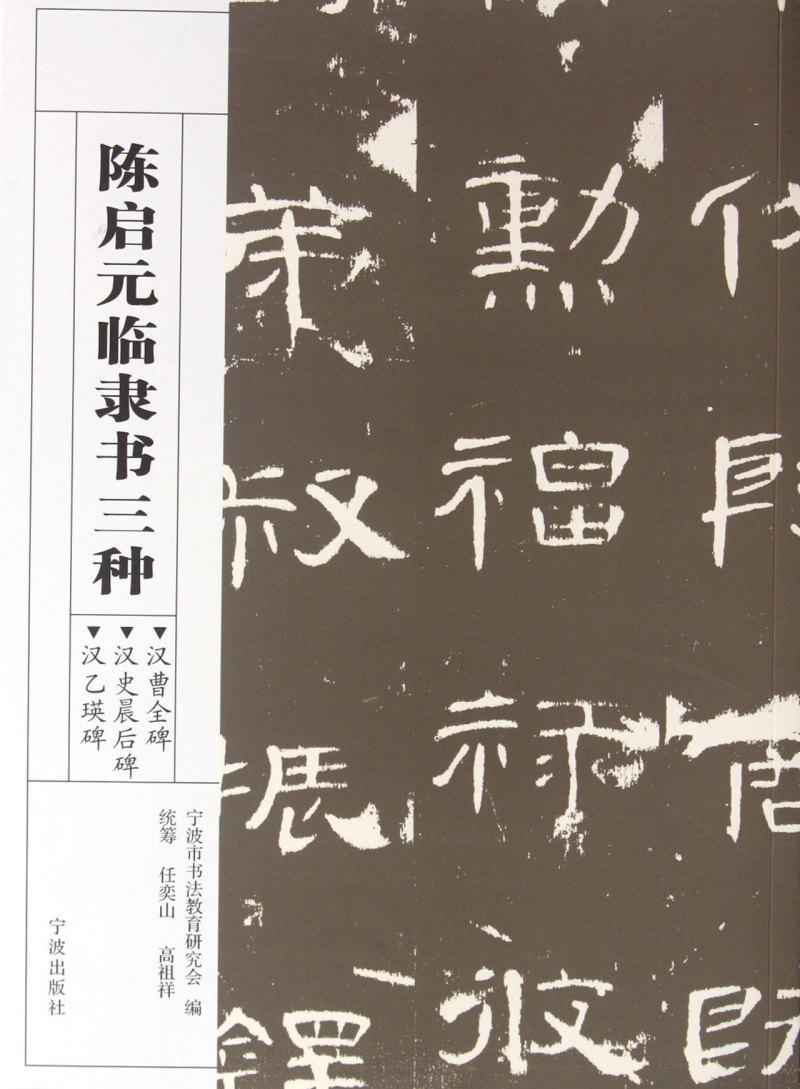 陈启元临隶书三种
▼汉曹全碑
▼汉史晨后碑
▼汉乙瑛碑
宁波市书法教育研究会 编
统筹 任奕山 高祖祥
宁波出版社
伐殷商既
勳福祿攸
弟叔振鐸